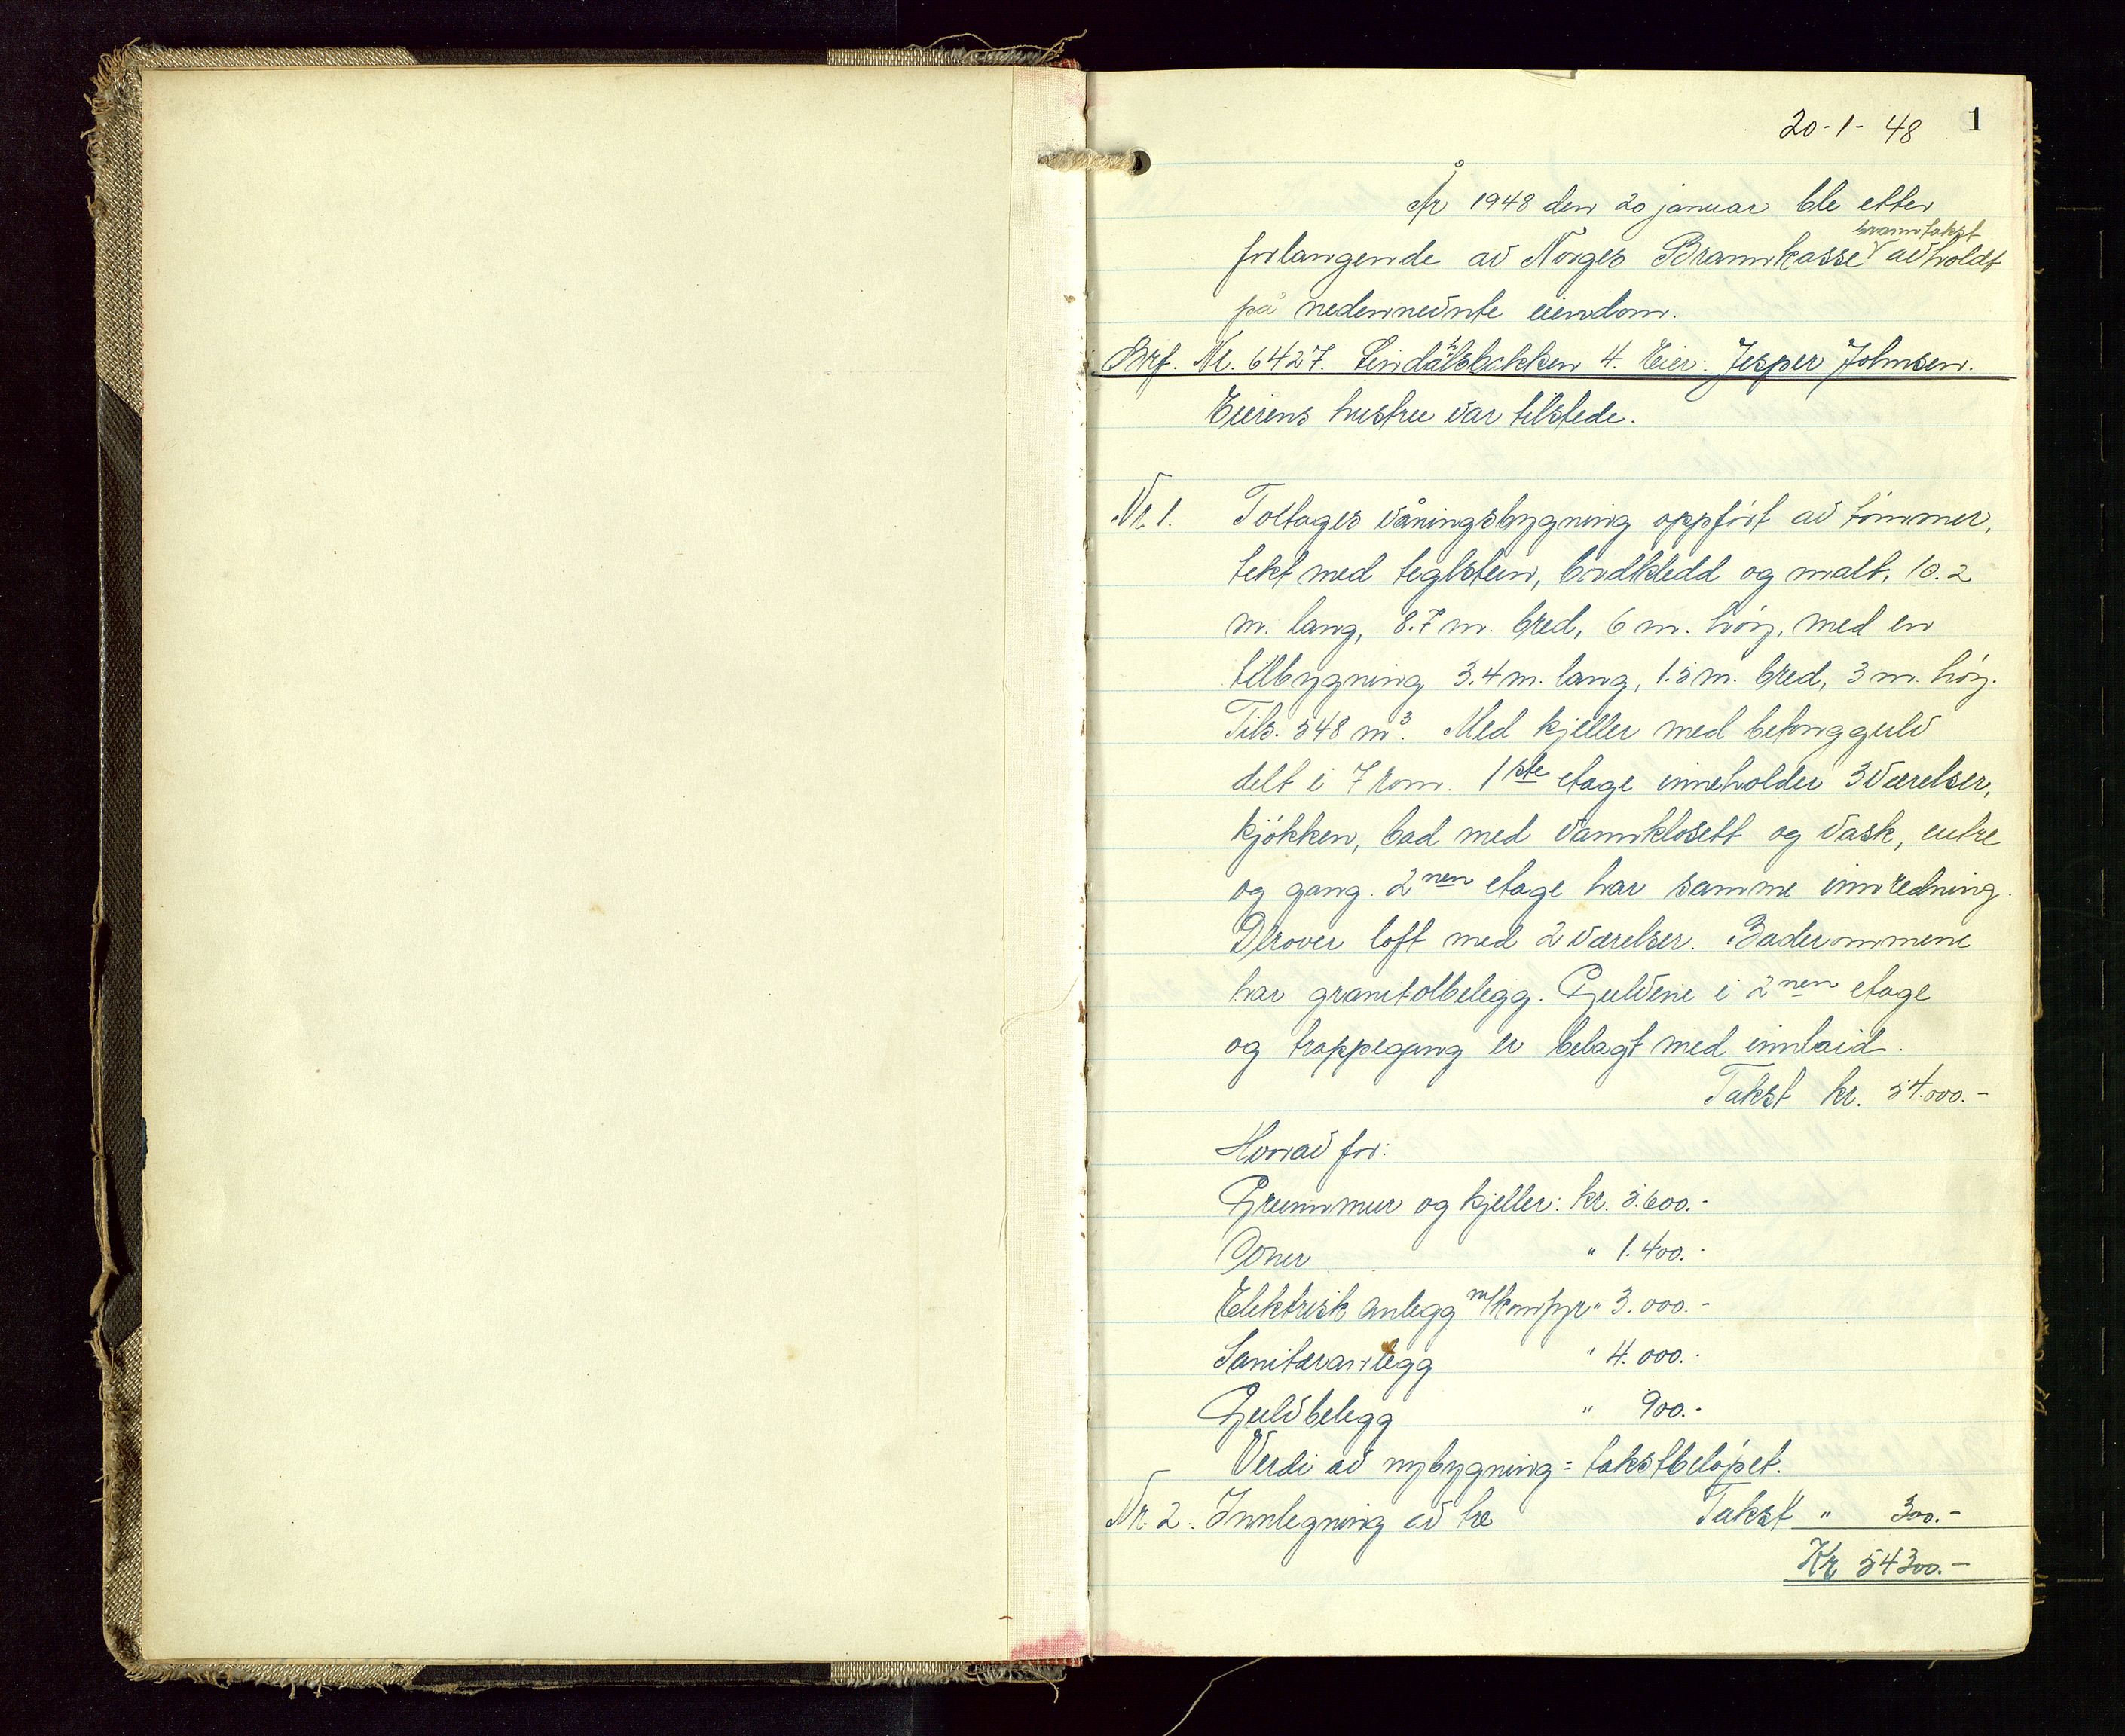 20-1-48 1
År 1948 den 20 januar ble etter
branntakst
forlangende av Norges Brannkasse V avholdt
på nedennevnte eiendom.
Brf. Nr. 6427. Lindalsbakken 4. Eier: Jesper Johnsen.
Eierens hustru var tilstede.
Nr. 1. Toetages våningsbygning oppført av tømmer,
tekt med teglstein, bordkledd og malt, 10.2
m. lang, 8.7 m. bred, 6 m. høy, med en
tilbygning 3.4 m. lang, 1.5 m. bred, 3 m. høy.
Tils. 548 m³. Med kjeller med betonggulv
delt i 7 rom. 1ste etage inneholder 3 værelser,
kjøkken, bad med vannklosett og vask, entre
og gang. 2nen etage har samme innredning.
Derover loft med 2 værelser. Baderommene
har granitolbelegg. Gulvene i 2nen etage
og trappegang er belagt med innlaid.
Takst kr. 54.000.-
Hvorav for:
Grunnmur og kjeller: kr. 5.600.-
Ovner " 1.400.-
Elektrisk anlegg m/komfyr " 3.000.-
Sanitæranlegg " 4.000.-
Gulvbelegg " 900.-
Verdi av nybygning = takstbeløpet.
Nr. 2. Innlegning av tre Takst " 300.-
Kr 54300.-